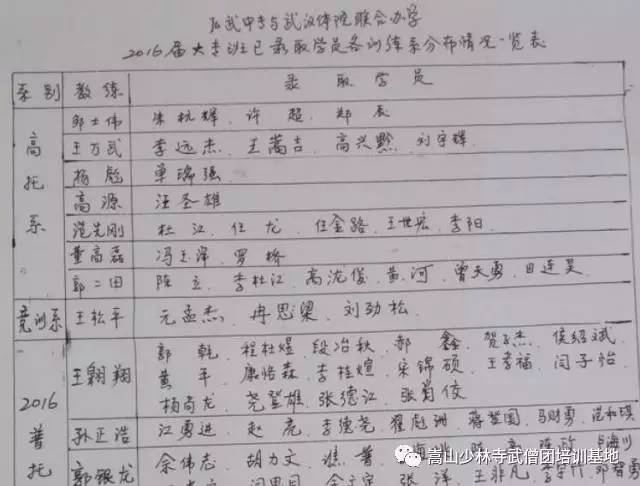 武中专与武汉体院联合办学
2016届大专班已录取学员各训练系分布情况一览表
系别 教练 录取学员
高托系
郭士伟 朱杭辉、许超、郑辰
王万武 李远杰、王嵩吉、高兴黔、刘宇辉
杨彪 单瑞强
高源 汪圣雄
范先刚 杜江、任龙、任金路、王世宏、李阳
董高磊 冯玉洋、罗桥
郭二田 陈立、李杜江、高沈俊、黄河、曾天勇、田连昊
竞训系 王松平 元孟杰、冉思梁、刘劲松
2016普托
王翱翔 郭乾、程杜煜、段冶秋、郝鑫、贺子杰、侯绍斌
黄平、康恪森、李桂煊、宋锦硕、王孝福、闫子怡
杨尚龙、尧登雄、张德江、张前佼
孙正浩 江勇进、赵亮、李德尧、翟彪洲、蒋登国、马财勇、范和琪
郭银龙 余伟志、胡力文、谯普
张洋、王非凡
嵩山少林寺武僧团培训基地